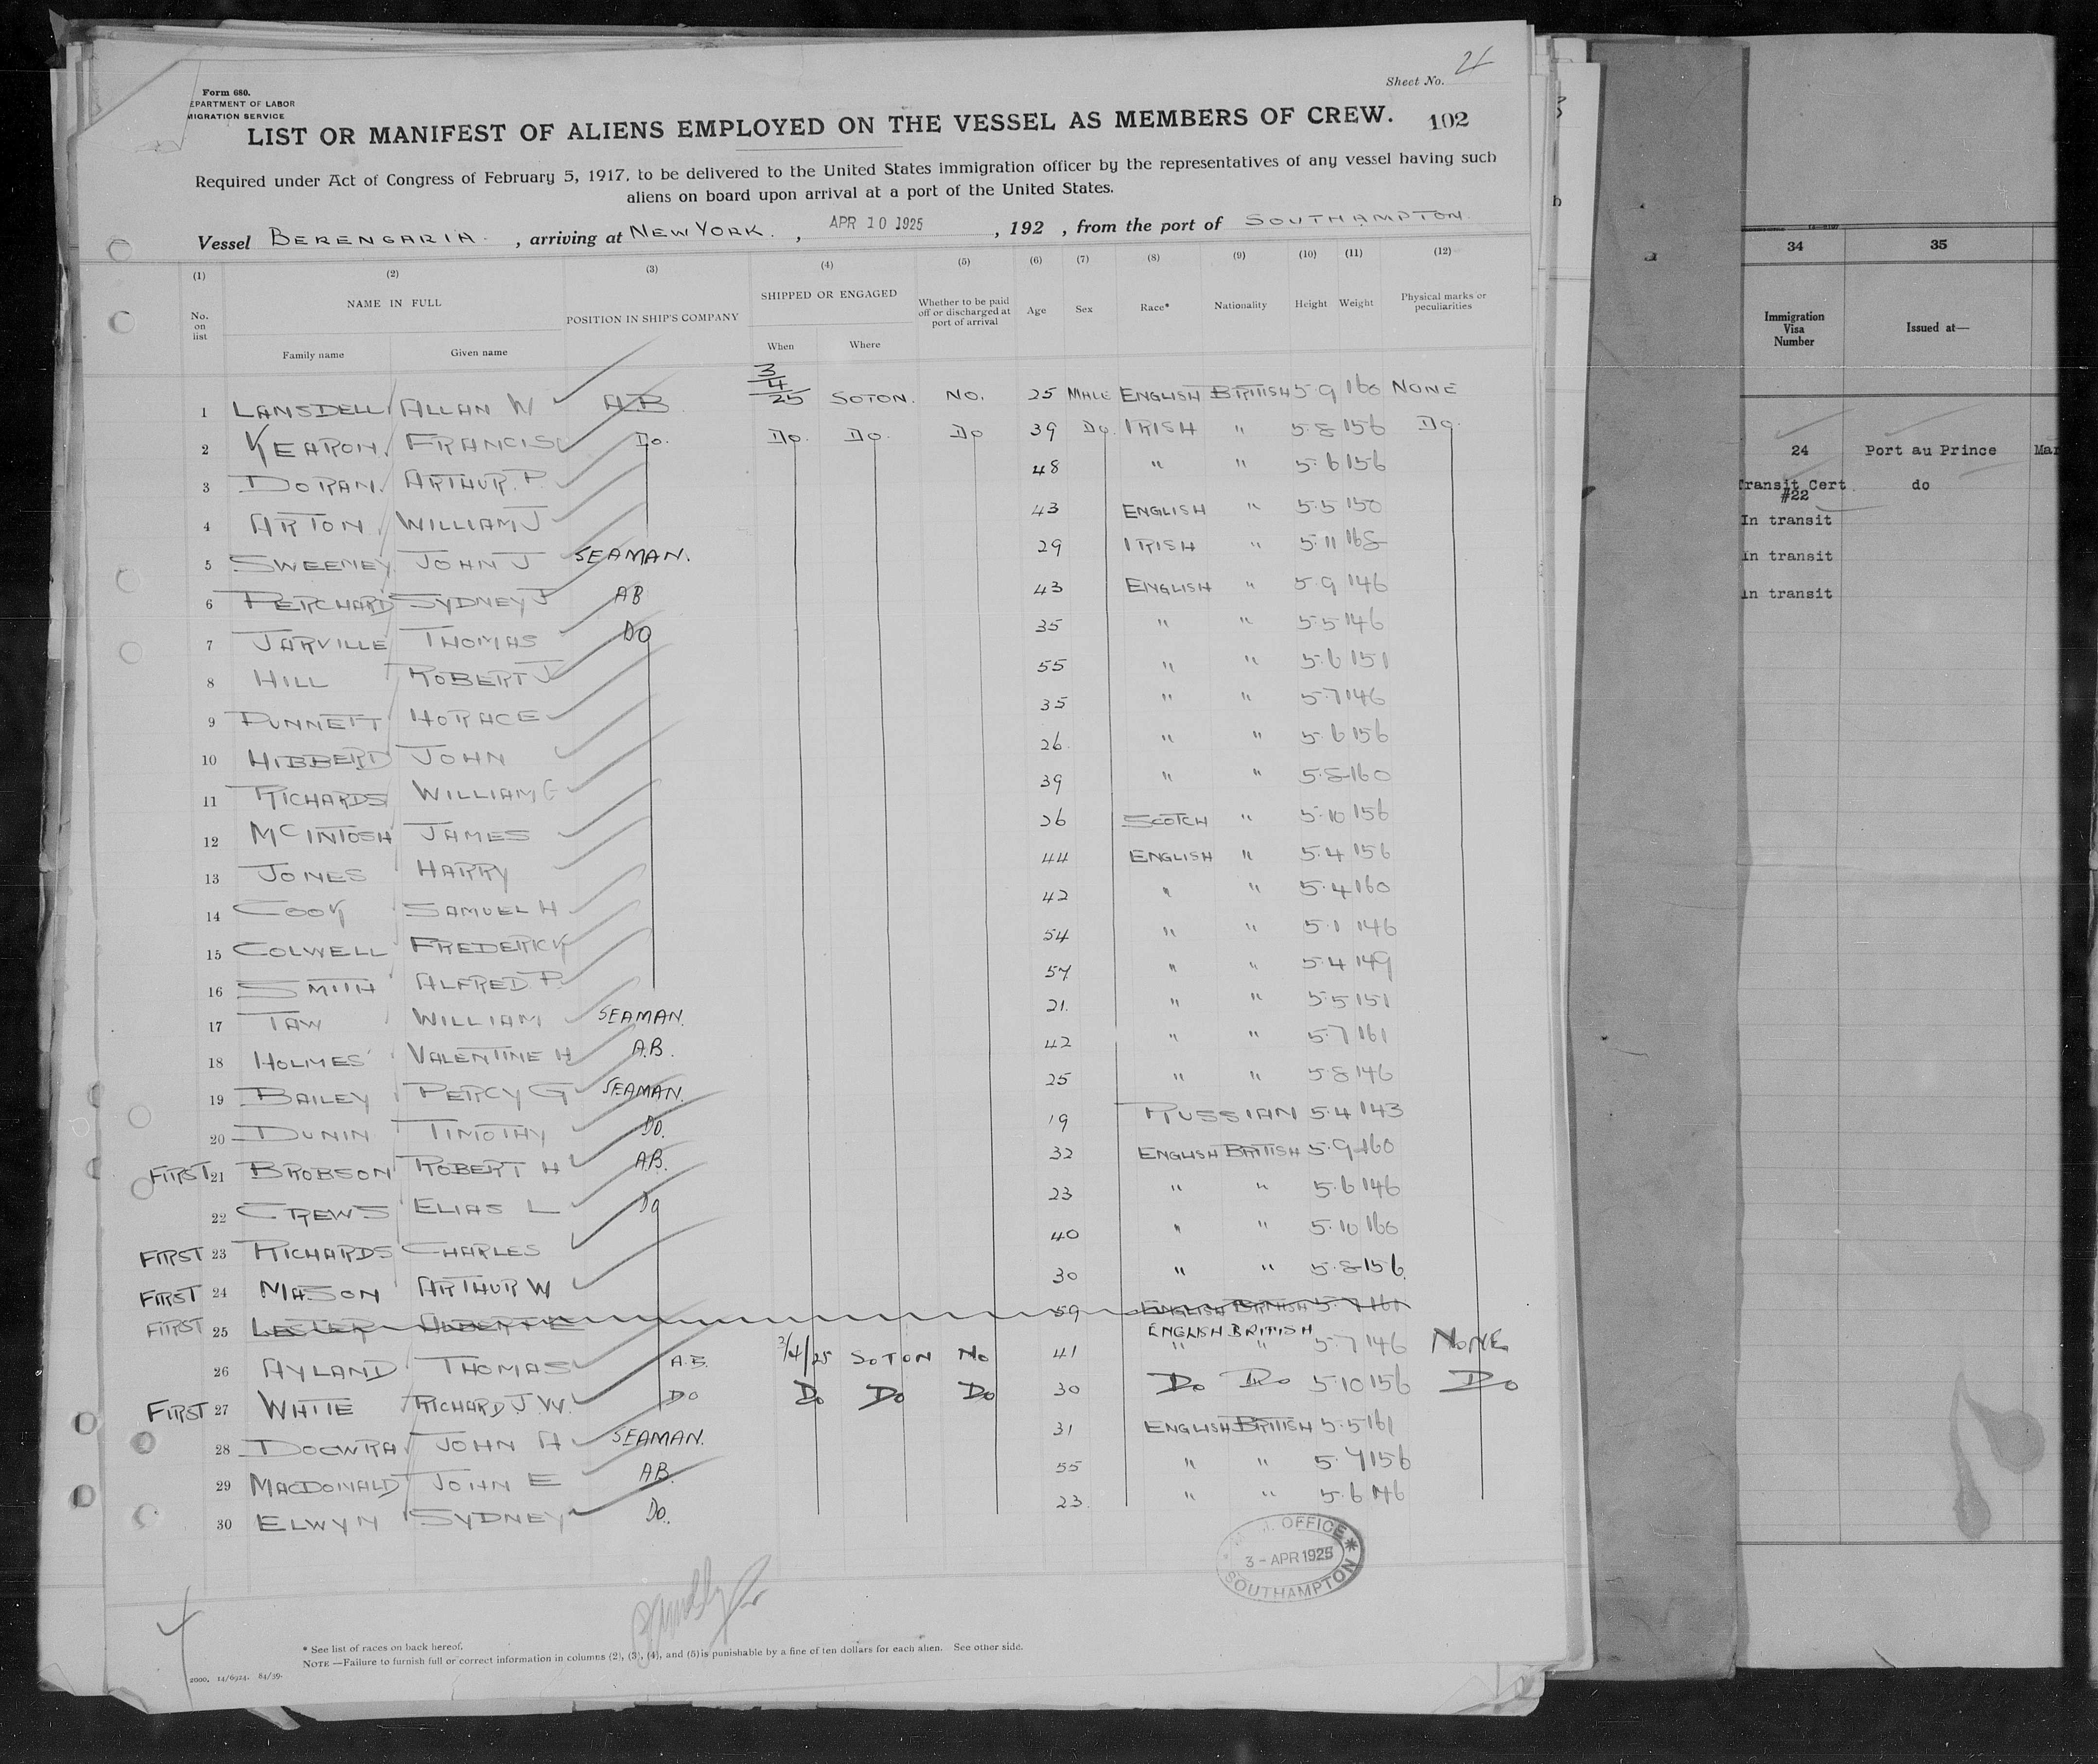 Sheet No. 4
Form 680.
EPARTMENT OF LABOR
MIGRATION SERVICE
LIST OR MANIFEST OF ALIENS EMPLOYED ON THE VESSEL AS MEMBERS OF CREW. 102
Required under Act of Congress of February 5, 1917, to be delivered to the United States immigration officer by the representatives of any vessel having such
aliens on board upon arrival at a port of the United States.
Vessel BERENGARIA. , arriving at NEW YORK. , APR 10 1925 , 192 , from the port of SOUTHAMPTON.
(1) (2) (3) (4) (5) (6) (7) (8) (9) (10) (11) (12)
No. on list NAME IN FULL POSITION IN SHIP'S COMPANY SHIPPED OR ENGAGED Whether to be paid off or discharged at port of arrival Age Sex Race* Nationality Height Weight Physical marks or peculiarities
Family name Given name When Where
1 LANSDELL ALLAN W A.B 3/4/25 SOTON. NO. 25 MALE ENGLISH BRITISH 5.9 160 NONE
2 KEARON. FRANCIS Do. Do. Do. Do 39 Do. IRISH " 5.8 156 Do.
3 DORAN. ARTHUR. P. 48 " " 5.6 156
4 ARTON WILLIAM J 43 ENGLISH " 5.5 150
5 SWEENEY JOHN J SEAMAN. 29 IRISH " 5.11 168
6 PERCHARD SYDNEY J AB 43 ENGLISH " 5.9 146
7 JARVILLE THOMAS Do 35 " " 5.5 146
8 HILL ROBERT J 55 " " 5.6 151
9 PUNNETT HORACE 35 " " 5.7 146
10 HIBBERD JOHN 26. " " 5.6 156
11 RICHARDS WILLIAM G 39 " " 5.8 160
12 McINTOSH JAMES 26 SCOTCH " 5.10 156
13 JONES HARRY 44 ENGLISH " 5.4 156
14 COOK SAMUEL H 42 " " 5.4 160
15 COLWELL FREDERICK 54 " " 5.1 146
16 SMITH ALFRED. P. 57 " " 5.4 149
17 TAW WILLIAM SEAMAN. 21. " " 5.5 151
18 HOLMES VALENTINE H A.B. 42 " " 5.7 161
19 BAILEY PERCY G SEAMAN. 25 " " 5.8 146
20 DUNIN TIMOTHY Do. 19 RUSSIAN 5.4 143
FIRST 21 BROBSON ROBERT H A.B. 32 ENGLISH BRITISH 5.9 160
22 CREWS ELIAS L Do 23 " " 5.6 146
FIRST 23 RICHARDS CHARLES 40 " " 5.10 160
FIRST 24 MASON ARTHUR W 30 " " 5.8 156.
FIRST 25 LESTER ALBERT E 59 ENGLISH BRITISH 5.7 161
ENGLISH BRITISH
26 AYLAND THOMAS A.B. 3/4/25 SOTON No 41 " " 5.7 146 NONE
FIRST 27 WHITE RICHARD J. W. Do Do Do Do 30 Do Do 5.10 156 Do
28 DOCWRA JOHN A SEAMAN. 31 ENGLISH BRITISH 5.5 161
29 MACDONALD JOHN E AB. 55 " " 5.7 156
30 ELWYN SYDNEY Do. 23. " " 5.6 146
OFFICE
3 - APR 1925
SOUTHAMPTON
* See list of races on back hereof.
NOTE —Failure to furnish full or correct information in columns (2), (3), (4), and (5) is punishable by a fine of ten dollars for each alien. See other side.
2000. 14/6924. 84/39.
34 35
Immigration Visa Number Issued at—
24 Port au Prince Mar
Transit Cert #22 do
In transit
In transit
In transit